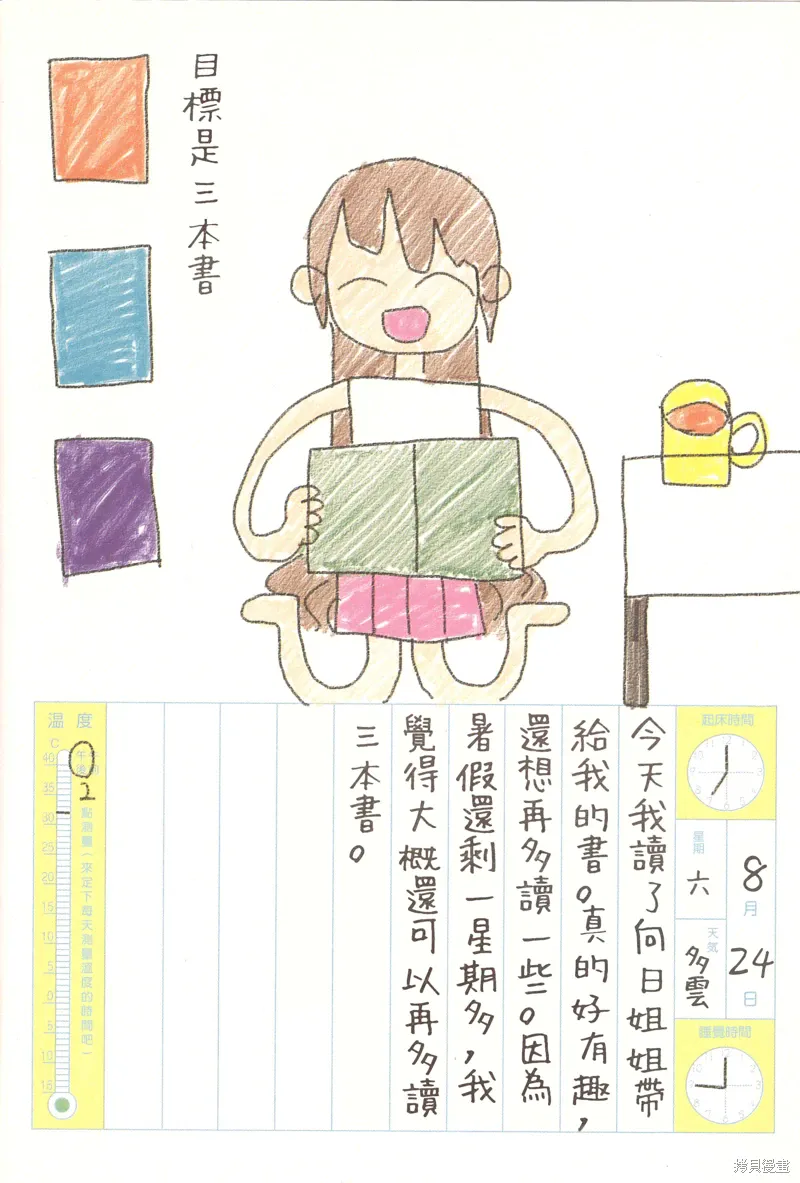 目標是三本書
起床時間
8月24日
星期 六
天氣 多雲
睡覺時間
今天我讀了向日姐姐帶
給我的書。真的好有趣,
還想再多讀一些。因為
暑假還剩一星期多,我
覺得大概還可以再多讀
三本書。
溫度
℃
午前
午後
2
點測量(來定下每天測量溫度的時間吧)
40
35
30
25
20
15
10
5
0
5
10
15
拷貝漫畫